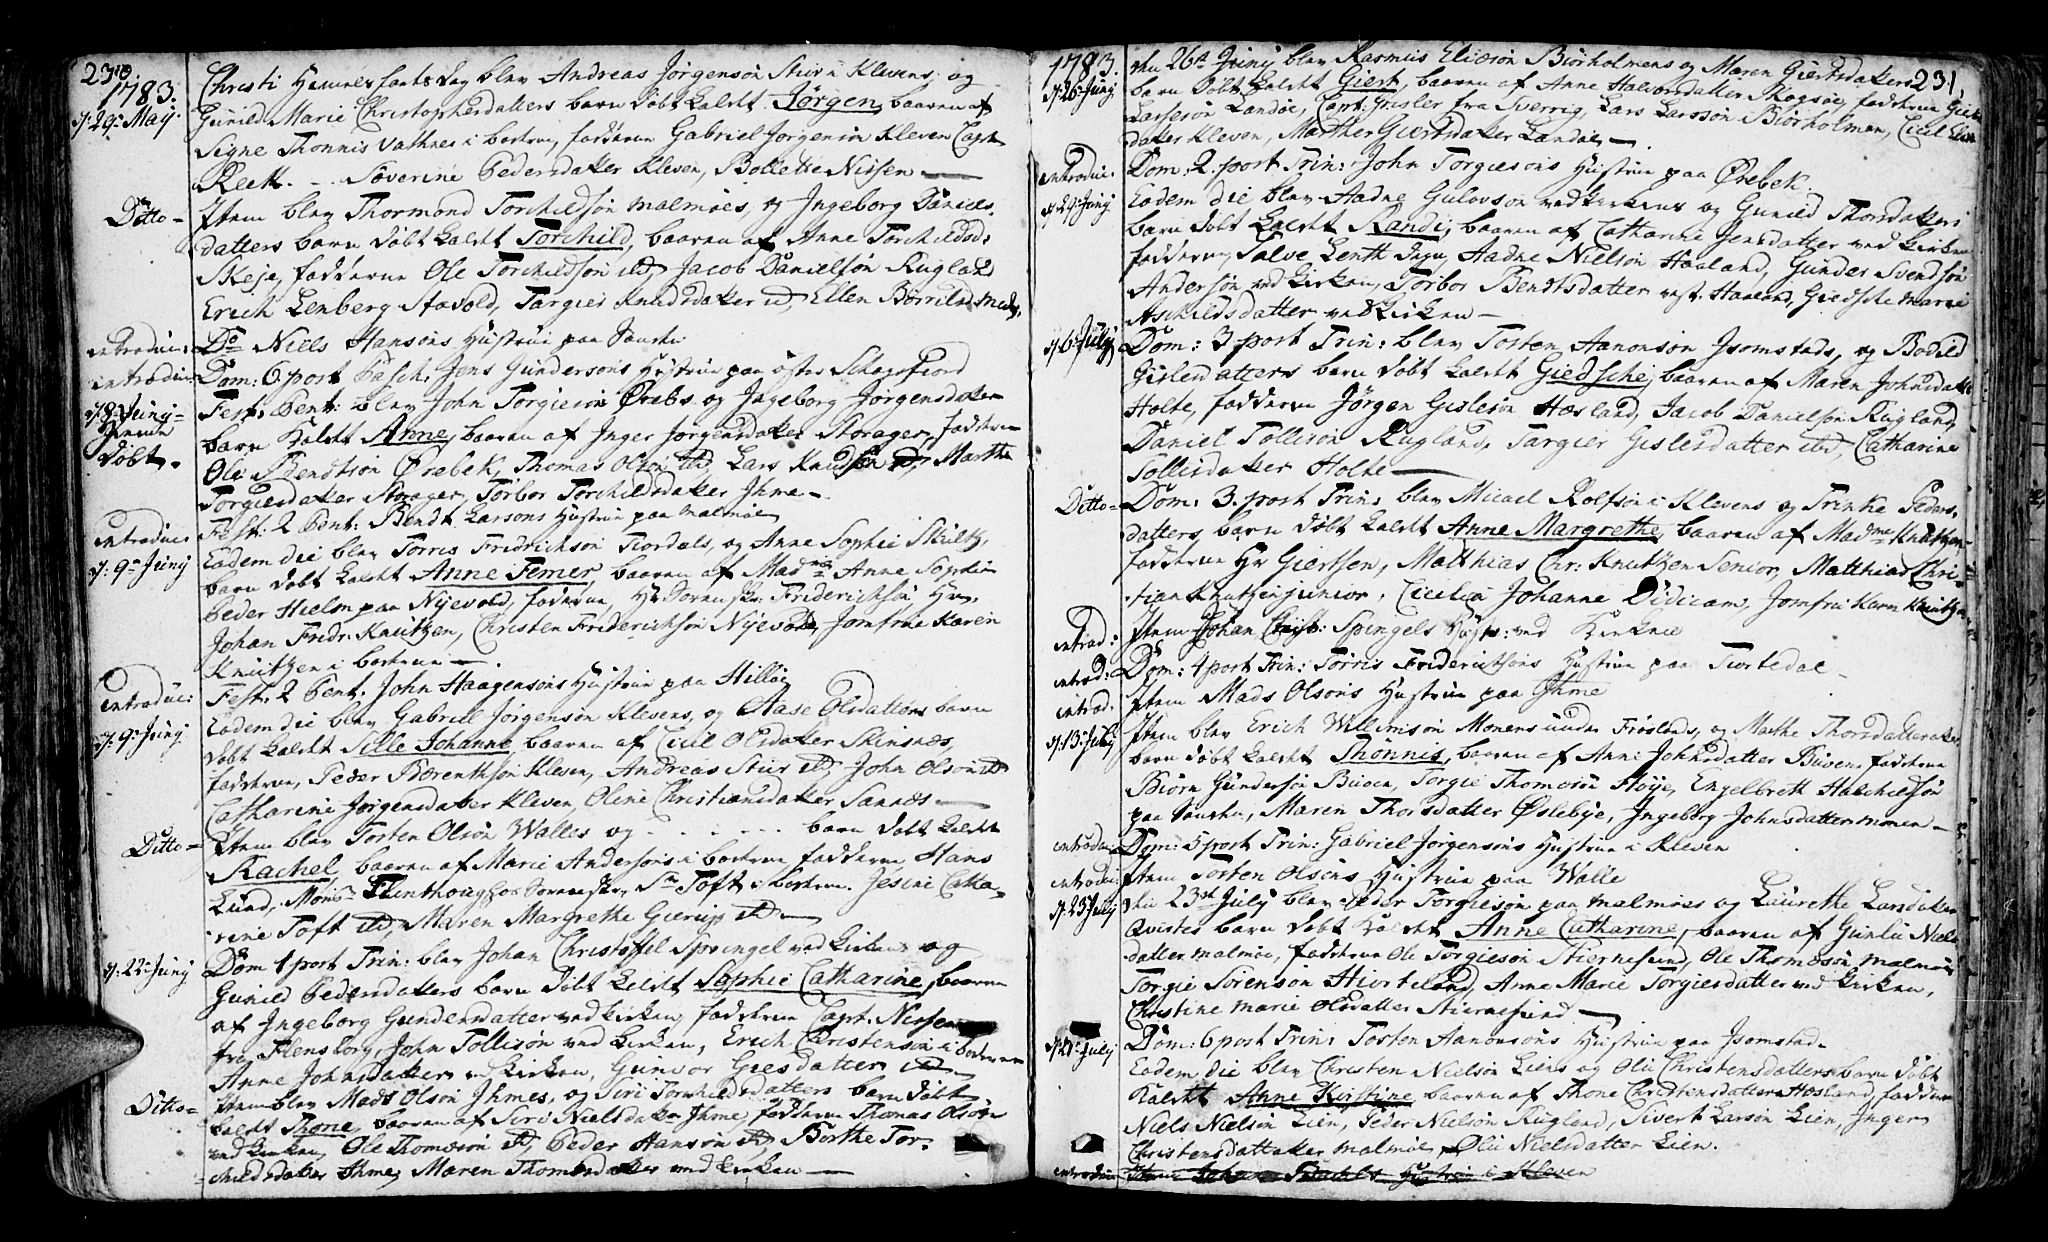 230
1783.
d. 29. May. Christi Himmelfarts dag blev Andreas Jørgensøn Stur i Klevens, og
Gunild Marie Christophersdatters barn døbt kaldet Jørgen, baaren af
Signe Thonnis Vathnes i boehren, fadderne Gabriel Jørgensøn Kleven, Capt.
Reett. - Severine Pedersdatter Kleven, Bollette Nissen
Ditto - Item blev Thormond Torchildsøn Malmøes, og Ingeborg Daniels-
datters barn døbt kaldet Torchild, baaren af Anne Torchildsd:
Skeje, fadderne Ole Torchildsøn ibd, Jacob Danielsøn Rugland
Erich Lenberg Stavold, Targier Knudsdatter ibd, Ellen
introduc: Do Niels Hansøns Hustrue paa
introduc: Dom: 6 post Pasch: Jens Gundersøns Hustrue paa øster Schagefiord
d. 8. Junij Fest: Pent: blev John Torgiesøn Ørebs og Ingeborg Jørgensdatters
døbt. barn kaldet Anne, baaren af Inger Jørgensdatter Storager, fadderne
Ole Bendtsøn Ørebek, Thomas Olsøn ibd, Lars Knudsøn ibd, Marthe
Torgiesdatter Storager, Torbor Torchildsdatter Ihme
introduc: Fest: 2 Pent: Bendt Larsøns Hustrue paa Malmøe
d. 9. Junij Eadem die blev Torris Fridrichsøn Fiordals, og Anne Sophie
barn døbt kaldet Anne Femer, baaren af Madme Anne Sophie
Peder Hielm paa Nyevold, fadderne, Hr Friderichsøn
Johan Fredr: Knutzen, Christen Friderichsøn Nyevold, Jomfrue Karen
Knutzen i boehren
introduc: Fest: 2 Pent. John Haagensøns Hustrue paa Hilløe
d. 9. Junij Eadem die blev Gabriel Jørgensøn Klevens, og Aase Olsdatters barn
døbt kaldet Sille Johanne, baaren af Cicil Olsdatter Skinsnæs,
fadderne, Peder Berenthsøn Kleven, Andreas Stur ibd, John Olsøn ibd
Catharine Jørgensdatter Kleven, Oline Christiansdatter Sannæs
Ditto - Item blev Torten Olsøn Walles og - - - - - barn døbt kaldet
Rachel, baaren af Marie Andersøns i boehren fadderne Hans
Lund, Monsr. Sr. Toft i boehren. Jesine Catha-
rine Toft ibd, Maren Margrethe Gierup ibd
d. 22. Junij Dom 1 post Trin: blev Johan Christoffel Springel ved kirken og
Gunild Pedersdatters barn døbt kaldet Sophie Catharine, baaren
af Ingeborg Gundersdatter ved kirken, fadderne Capt. Nissen
fra Flensborg, John Tollisøn ved kirken, Erich Christensøn i boehren
Anne Johnsdatter ved kirken, Gunvor Giesdatter ibd
Ditto - Item blev Mads Olsøn Ihmes, og Siri Torchildsdatters barn døbt
kaldet Thone, baaren af Siri Nielsdatter Ihme, fadderne Thomas Olsøn
ved kirken, Ole Thomesøn ibd, Peder Hansøn ibd, Berthe Tor-
childsdatter Ihme, Maren Thomesdatter ved kirken
231,
1783.
d. 26. Junij den 26de Junij blev Rasmus Eliesøn Biørholmens og Maren Giertsdatters
barn døbt kaldet Giert, baaren af Anne Halvorsdatter Skogsøe, fadderne Giert
Larsesøn Landøe, Capt: Grisler fra Sverrig, Lars Larssøn Biørholmen, Cicil
datter Kleven, Marthe Giertsdatter Landøe
introduc: Dom: 2. post Trin: John Torgiesøns Hustrue paa Ørebek.
d. 29. Junij Eadem die blev Aadne Gulovsøn ved kirkens og Gunild Thorsdatters
barn døbt kaldet Randi, baaren af Catharine Jensdatter ved kirken
fadderne, Salve Aadne Nielsøn Haaland, Gunder Svendsøn
Andersøn ved kirken, Torbor Bendtsdatter vest. Haaland, Giedsche Marie
Aschildsdatter ved kirken
d. 6. Julij Dom: 3 post Trin: blev Torten Aanonsøn Isomstads, og Bodild
Gislesdatters barn døbt kaldet Giedsche, baaren af Maren Johnsdatter
Holte, fadderne Jørgen Gislesøn Hæsland, Jacob Danielsøn Rugland,
Daniel Tollisøn Rugland, Targier Gislesdatter ibd, Catharine
Tollisdatter Holte
Ditto - Dom: 3. post Trin: blev Micael Rolfsøn i Klevens og Trinke Peders-
datters, barn døbt kaldet Anne Margrethe, baaren af Madme Knutzen
fadderne Hr Giertsen, Matthias Chr: Knutzen Senior, Matthias Chri-
stian Knutzen junior, Cicelia Johanne Didicam, Jomfru Karen Knutzen
introd: Item Johan Christ: Spingels Hust: ved Kirkene
introd: Dom: 4 post Trin: Torris Friderichsøns Hustrue paa Fiortedal
introd: Item Mads Olsøns Hustrue paa Ihme
d. 13. July Item blev Erich Willumsøn Monens under Frøslands, og Marthe Thorsdatters
barn døbt kaldet Thonnis, baaren af Anne Johnsdatter Buven, fadderne
Biørn Gundersøn Buven, Torgie Thomesøn Høye, Engelbrett Halchildsøn
paa Maren Thorsdatter Øslebye, Ingeborg Johnsdatter Monen
introduc: Dom: 5 post Trin: Gabriel Jørgensøns Hustrue i Kleven
introduc: Item Torten Olsøns Hustrue paa Walle
d. 23 Julij den 23de July blev Peder Torgiesøn paa Malmøes og Laurethe Larsdatter
Qvistes barn døbt kaldet Anne Catharine, baaren af Gunlu Niels
datter Malmøe, fadderne Ole Torgiesøn Stiernesund, Ole Thomesøn Malmøe
Torgie Sørensøn Hiorteland, Anne Marie Torgiesdatter ved kirken,
Christine Marie Olsdatter Stiernesund
d. 27. July Dom: 6 post Trin: Torten Aanonsøns Hustrue paa Isomstad
Eadem die blev Christen Nielsøn Liens og Oliv Christensdatters barn døbt
kaldet Anne Kirstine baaren af Thone Christensdatter Hæsland, fadderne
Niels Nielsøn Lien, Peder Nielsøn Rugland, Sivert Larsøn Lien, Inger
Christensdatter Malmøe, Oliv Nielsdatter Lien.
introduc: Item John Hustrue i Kleven